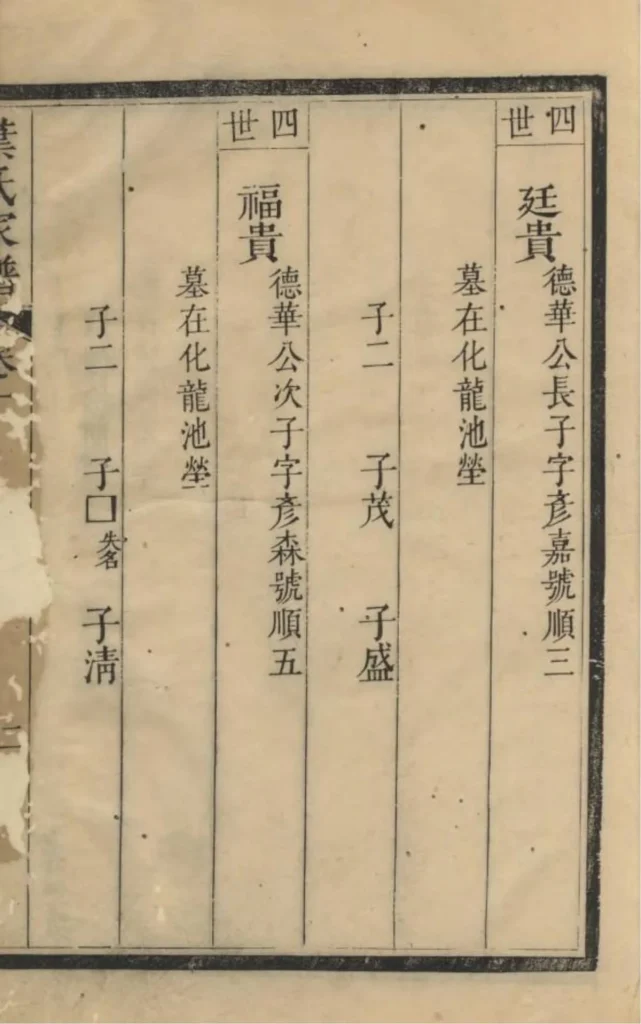 四世
廷貴
德華公長子字彥嘉號順三
墓在化龍池塋
子二 子茂 子盛
四世
福貴
德華公次子字彥森號順五
墓在化龍池塋
子二 子□失名 子淸
葉氏家譜 卷一 二